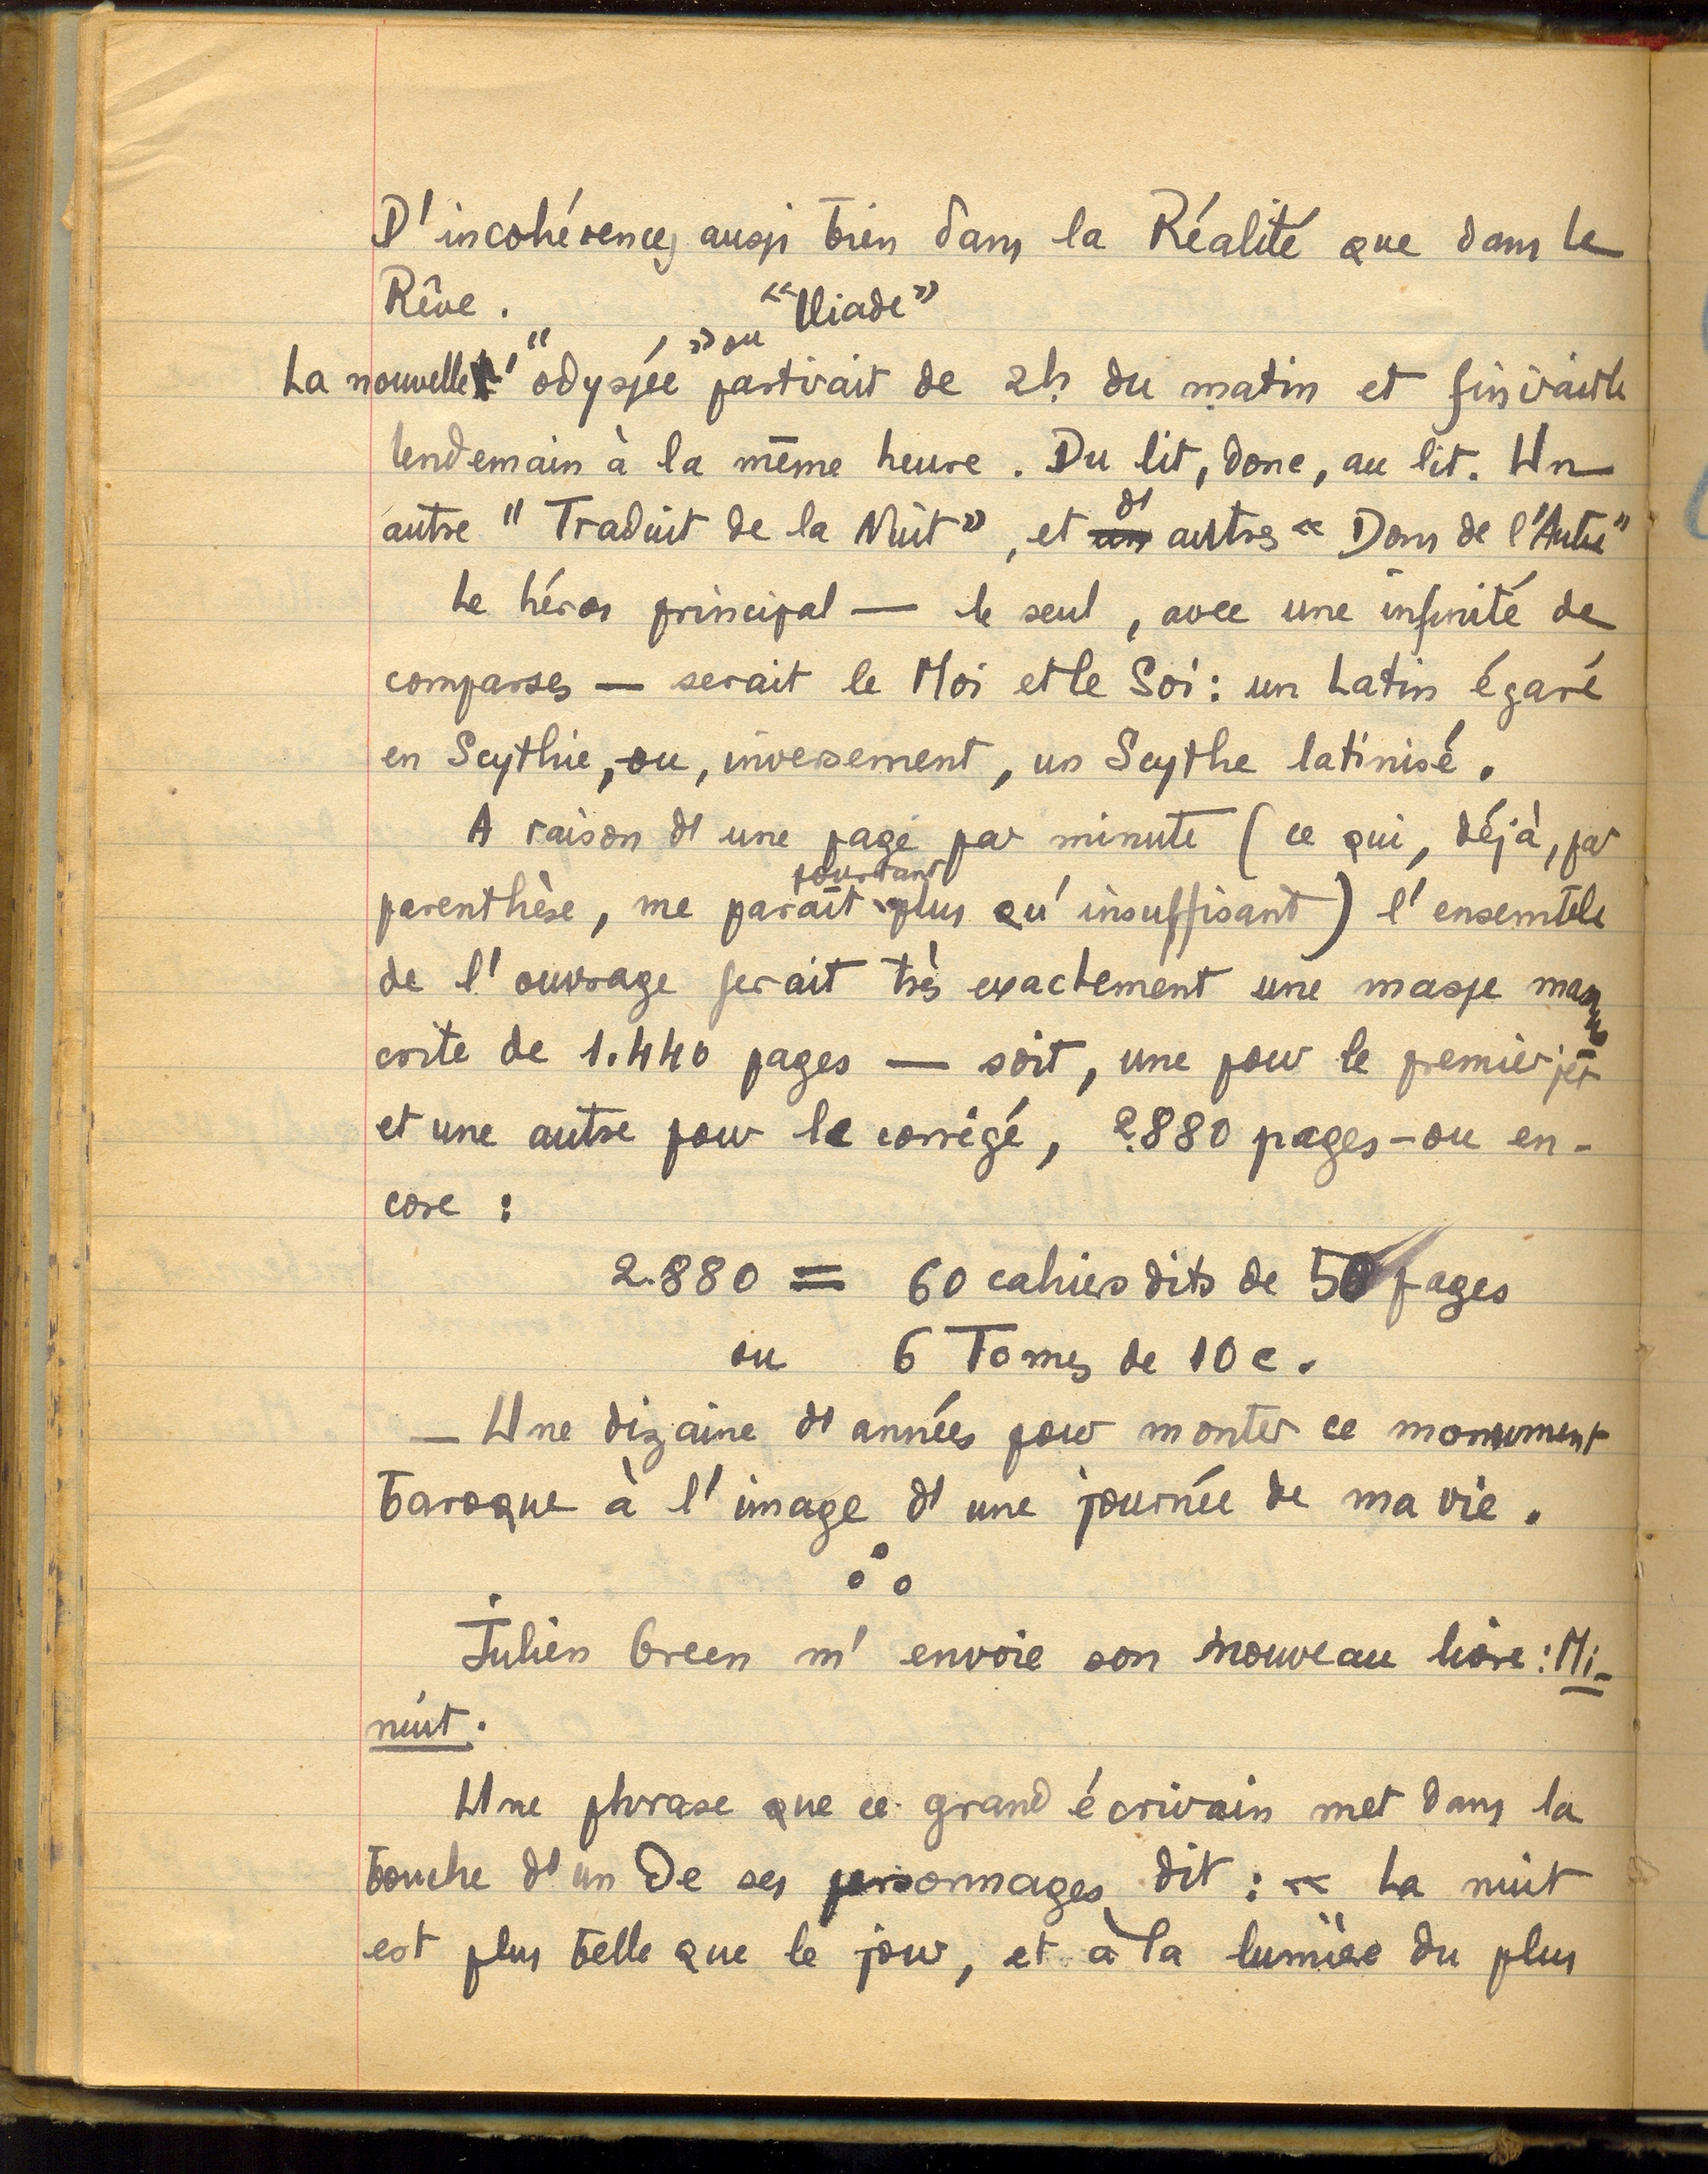 D'incohérences aussi bien dans la Réalité que dans le
Rêve.
La nouvelle "odyssée" ou "Iliade" partirait de 2h. du matin et finirait le
lendemain à la même heure. Du lit, donc, au lit. Un
autre "Traduit de la Nuit", et un d'autres « Dons de l'Autre"
Le héros principal — le seul, avec une infinité de
comparses — serait le Moi et le Soi : un Latin égaré
en Scythie, ou, inversement, un Scythe latinisé.
A raison d'une page par minute (ce qui, déjà, par
parenthèse, me paraît pourtant plus qu'insuffisant) l'ensemble
de l'ouvrage serait très exactement une masse manus
crite de 1.440 pages — soit, une pour le premier jet
et une autre pour le corrigé, 2.880 pages - ou en-
core :
2.880 = 60 cahiers dits de 50 pages
ou 6 Tomes de 10 c.
— Une dizaine d'années pour monter ce monument
baroque à l'image d'une journée de ma vie.
Julien Green m'envoie son nouveau livre : Mi-
nuit.
Une phrase que ce grand écrivain met dans la
bouche d'un de ses personnages dit : « La nuit
est plus belle que le jour, et à la lumière du plus